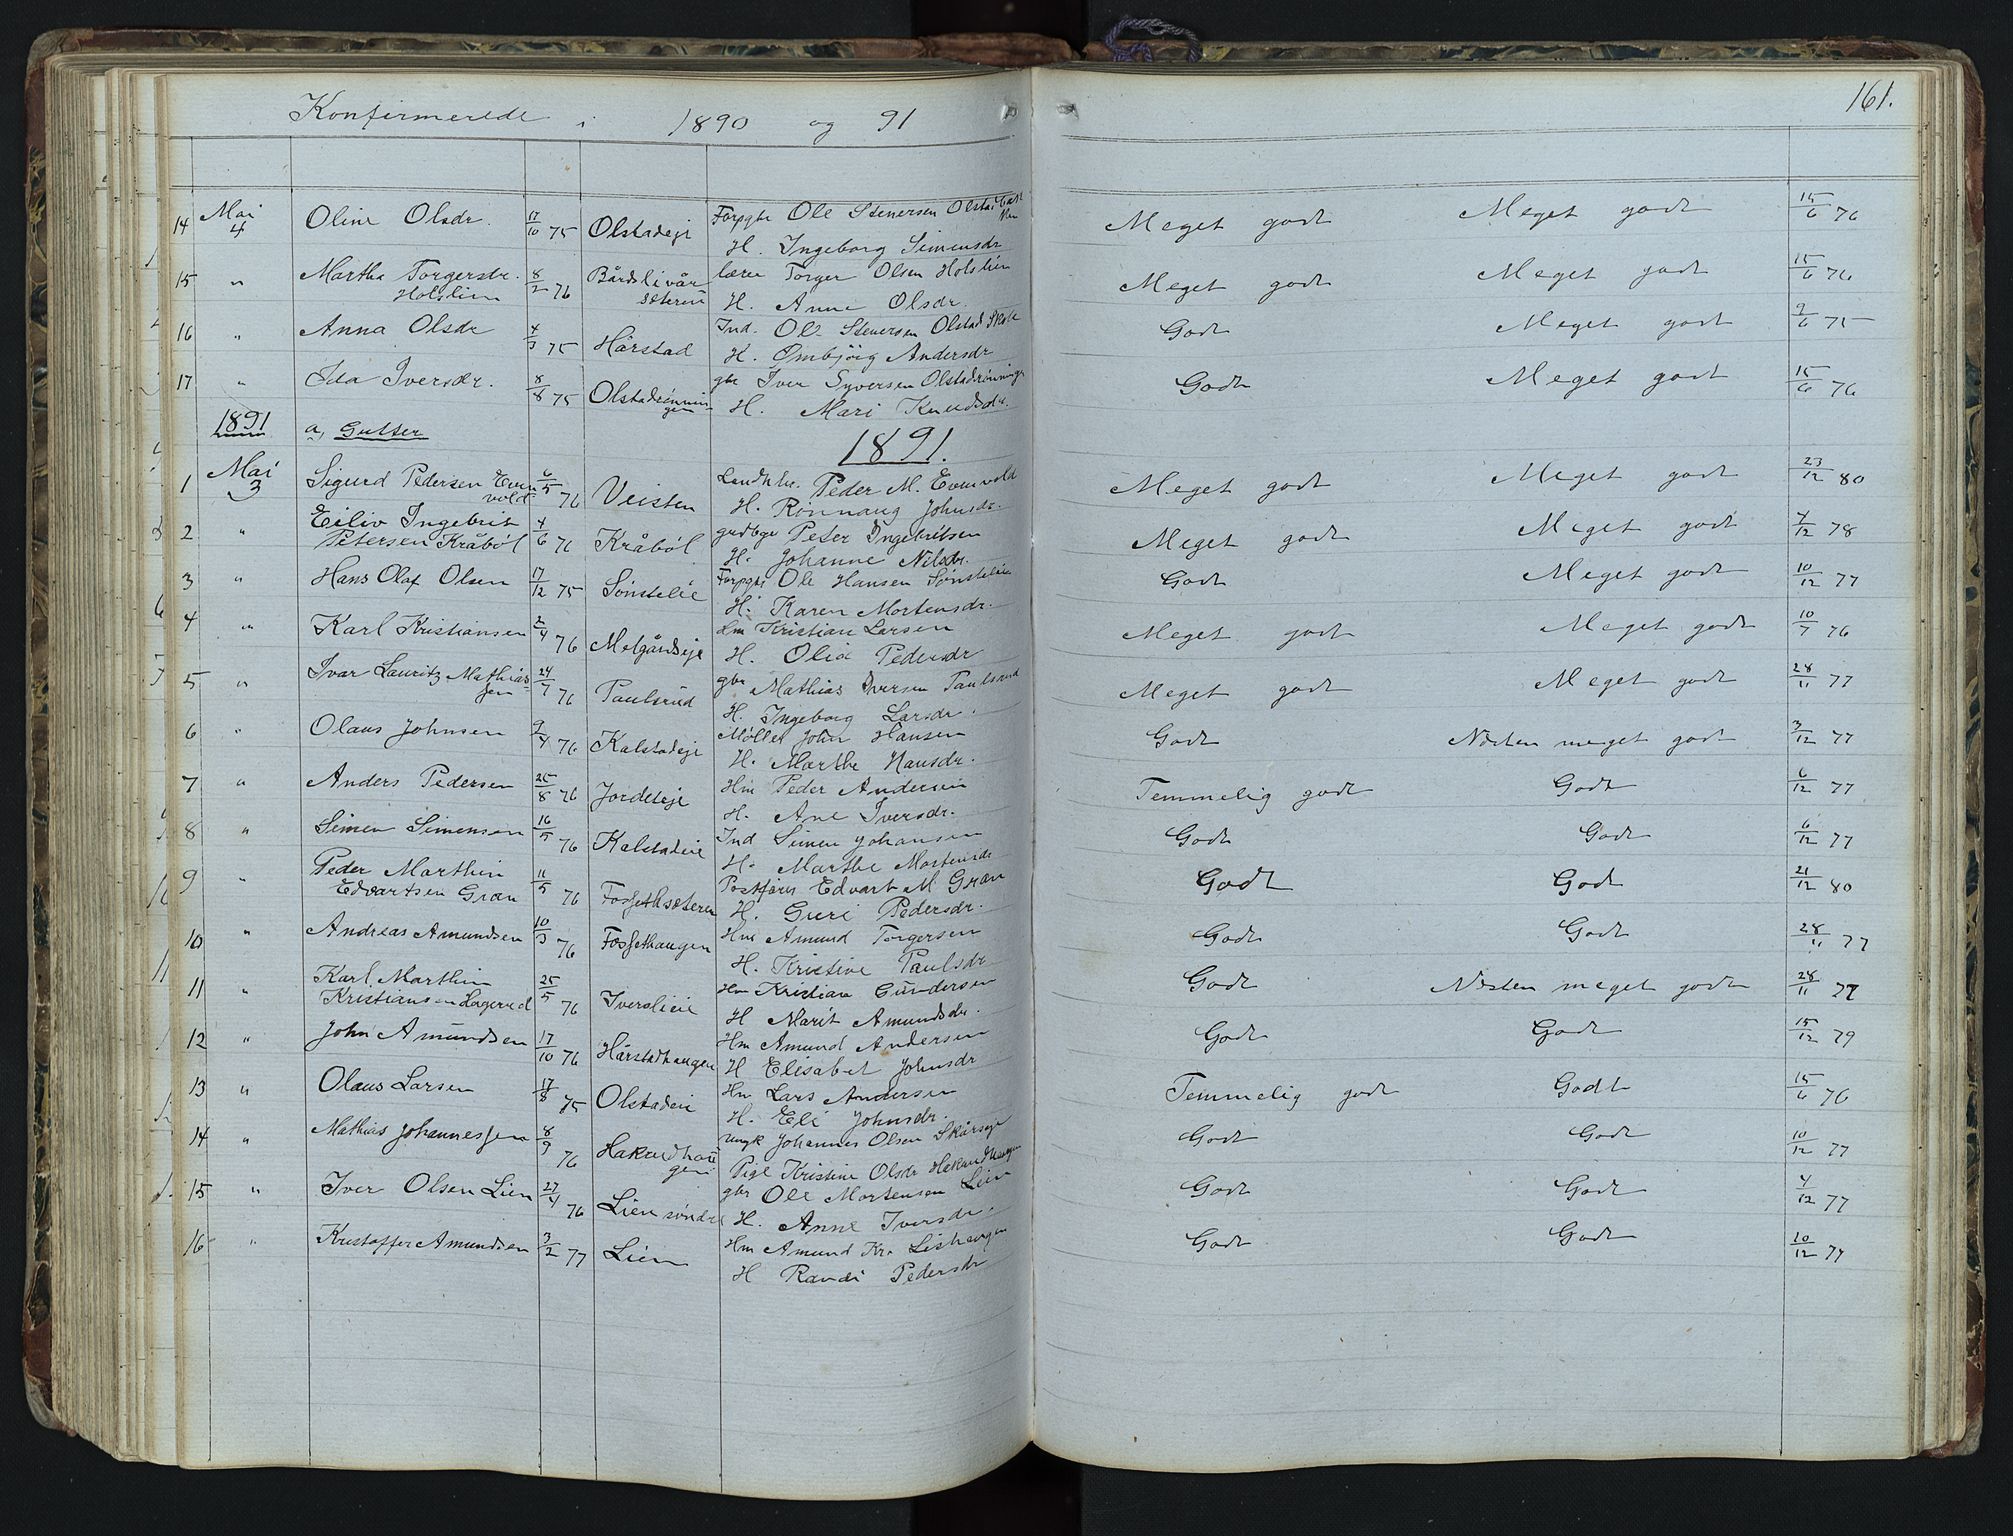 Konfirmerede i 1890 og 91
161.
14 Mai 4 Oline Olsdr. 17/10 75 Olstadeje Forpgtr Ole Stenersen Olstad
H. Ingeborg Simensdr Meget godt Meget godt 15/6 76
15 " Marthe Torgersdr. Holslien 8/2 76 Bårdslivår sæteren lærer Torger Olsen Holslien
H. Anne Olsdr. Meget godt Meget godt 15/6 76
16 " Anna Olsdr 4/3 75 Hårstad Ind. Ole Stenersen Olstad
H. Ømbjörg Andersdr Godt Meget godt 9/6 75
17 " Ida Iversdr. 8/8 75 Olstadrønningen gbr Iver Syversen Olstadrønningen
H. Mari Knudsdr. Godt Meget godt 15/6 76
1891 a, Gutter 1891.
1 Mai 3 Sigurd Pedersen Evenvold 6/5 76 Veisten Landh. Peder M. Evenvold
H. Rønnaug Johnsdr. Meget godt Meget godt 23/12 80
2 " Eiliv Ingebrit Petersen Kråbøl 4/6 76 Kråböl grdbgr Peter Ingebritsen
H. Johanne Nilsdr. Meget godt Meget godt 4/12 78
3 " Hans Olaf Olsen 17/12 75 Sønstelie Forpgtr Ole Hansen Sønstelie
H. Karen Mortensdr. Godt Meget godt 10/12 77
4 " Karl Kristiansen 2/4 76 Melgårdseje Hm Kristian Larsen
H. Olia Pedersdr Meget godt Meget godt 10/7 76
5 " Ivar Lauritz Mathiassen 24/7 76 Paulsrud gbr Mathias Iversen Paulsrud
H. Ingeborg Larsdr. Meget godt Meget godt 28/11 77
6 " Olaus Johnsen 9/4 76 Kalstadeje Møller John Hansen
H. Marthe Hansdr. Godt Næsten meget godt 3/12 77
7 " Anders Pedersen 25/8 76 Jordeteje Hm Peder Andersen
H. Ane Iversdr. Temmelig godt Godt 6/12 77
8 " Simen Simensen 16/5 76 Kalstadeie Ind Simen Johansen
H. Marthe Mortensdr Godt Godt 6/12 77
9 " Peder Marthin Edvartsen Gran 11/5 76 Fossethsæteren Postfører Edvart M Gran
H. Guri Pedersdr. Godt Godt 21/12 80
10 " Andreas Amundsen 10/3 76 Fossethaugen Hm Amund Torgersen
H. Kristine Paulsdr Godt Godt 28/11 77
11 " Karl Marthin Kristiansen Hagerud 25/5 76 Iverslieie Hm Kristian Gundersen
H Marit Amundsdr. Godt Næsten meget godt 28/11 77
12 " John Amundsen 17/10 76 Hårstadhaugen Hm Amund Andersen
H Elisabet Johnsdr Godt Godt 15/12 79
13 " Olaus Larsen 17/8 75 Olstadeie Hm Lars Andersen
H. Eli Johnsdr. Temmelig godt Godt 15/6 76
14 " Mathias Johannessen 8/9 76 Hakrudhaugen ungk Johannes Olsen Skårseje
Pige Kristine Olsdr Hakrudhaugen Godt Godt 10/12 77
15 " Iver Olsen Lien 27/4 76 Lien søndre gbr Ole Mortensen Lien
H. Anne Iversdr. Godt Godt 4/12 77
16 " Kristoffer Amundsen 3/2 77 Lien Hm Amund Kr. Lishaugen
H Randi Pedersdr Godt Godt 10/12 77